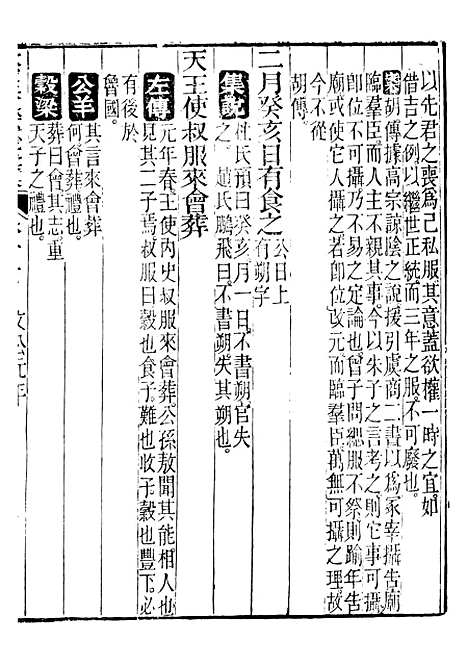 以先君之喪爲己私服其意蓋欲權一時之宜如
借吉之例以繼世正統而三年之服不可廢也
案胡傳據高宗諒陰之說援引虞商二書以爲冢宰攝告廟
臨羣臣而人主不親其事今以朱子之言考之則它事可攝
即位不可攝乃不易之定論也曾子問緦服不祭則踰年告
廟或使它人攝之若卽位改元而臨羣臣萬無可攝之理故
今不從
胡傳
二月癸亥日有食之公曰上有朔字
集說杜氏預曰癸亥月一日不書朔官失
之 趙氏鵬飛曰不書朔失其朔也
天王使叔服來會葬
左傳元年春王使內史叔服來會葬公孫敖聞其能相人也
見其二子焉叔服曰穀也食子難也收子穀也豐下必
有後於
魯國
公羊其言來會葬
何會葬禮也
穀梁葬曰會其志重
天子之禮也